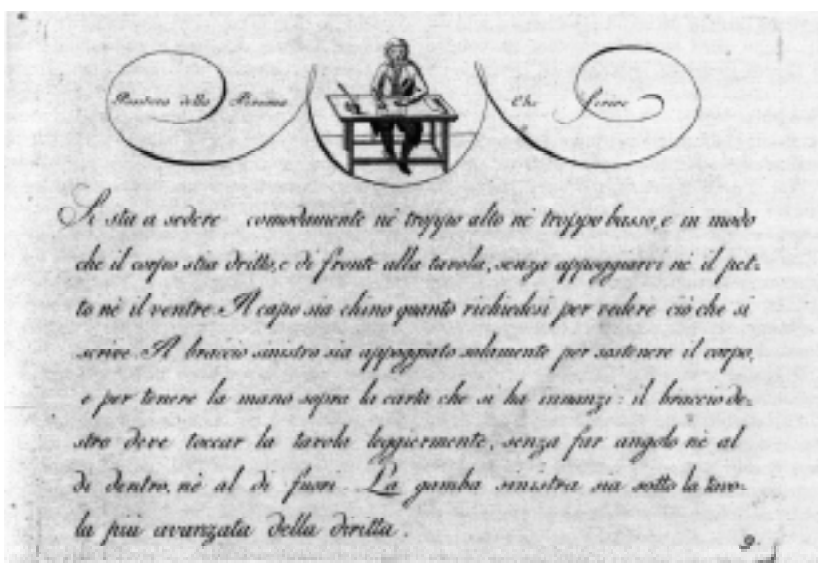 Positura della Persona Che Scrive
Si sta a sedere comodamente nè troppo alto nè troppo basso, e in modo
che il corpo stia dritto, e di fronte alla tavola, senza appoggiarvi nè il pet-
to nè il ventre. Il capo sia chino quanto richiedesi per vedere ciò che si
scrive. Il braccio sinistro sia appoggiato solamente per sostenere il corpo,
e per tenere la mano sopra la carta che si ha innanzi: il braccio de-
stro deve toccar la tavola leggiermente, senza far angolo nè al
di dentro, nè al di fuori. La gamba sinistra sia sotto la tavo-
la più avanzata della diritta.
9.